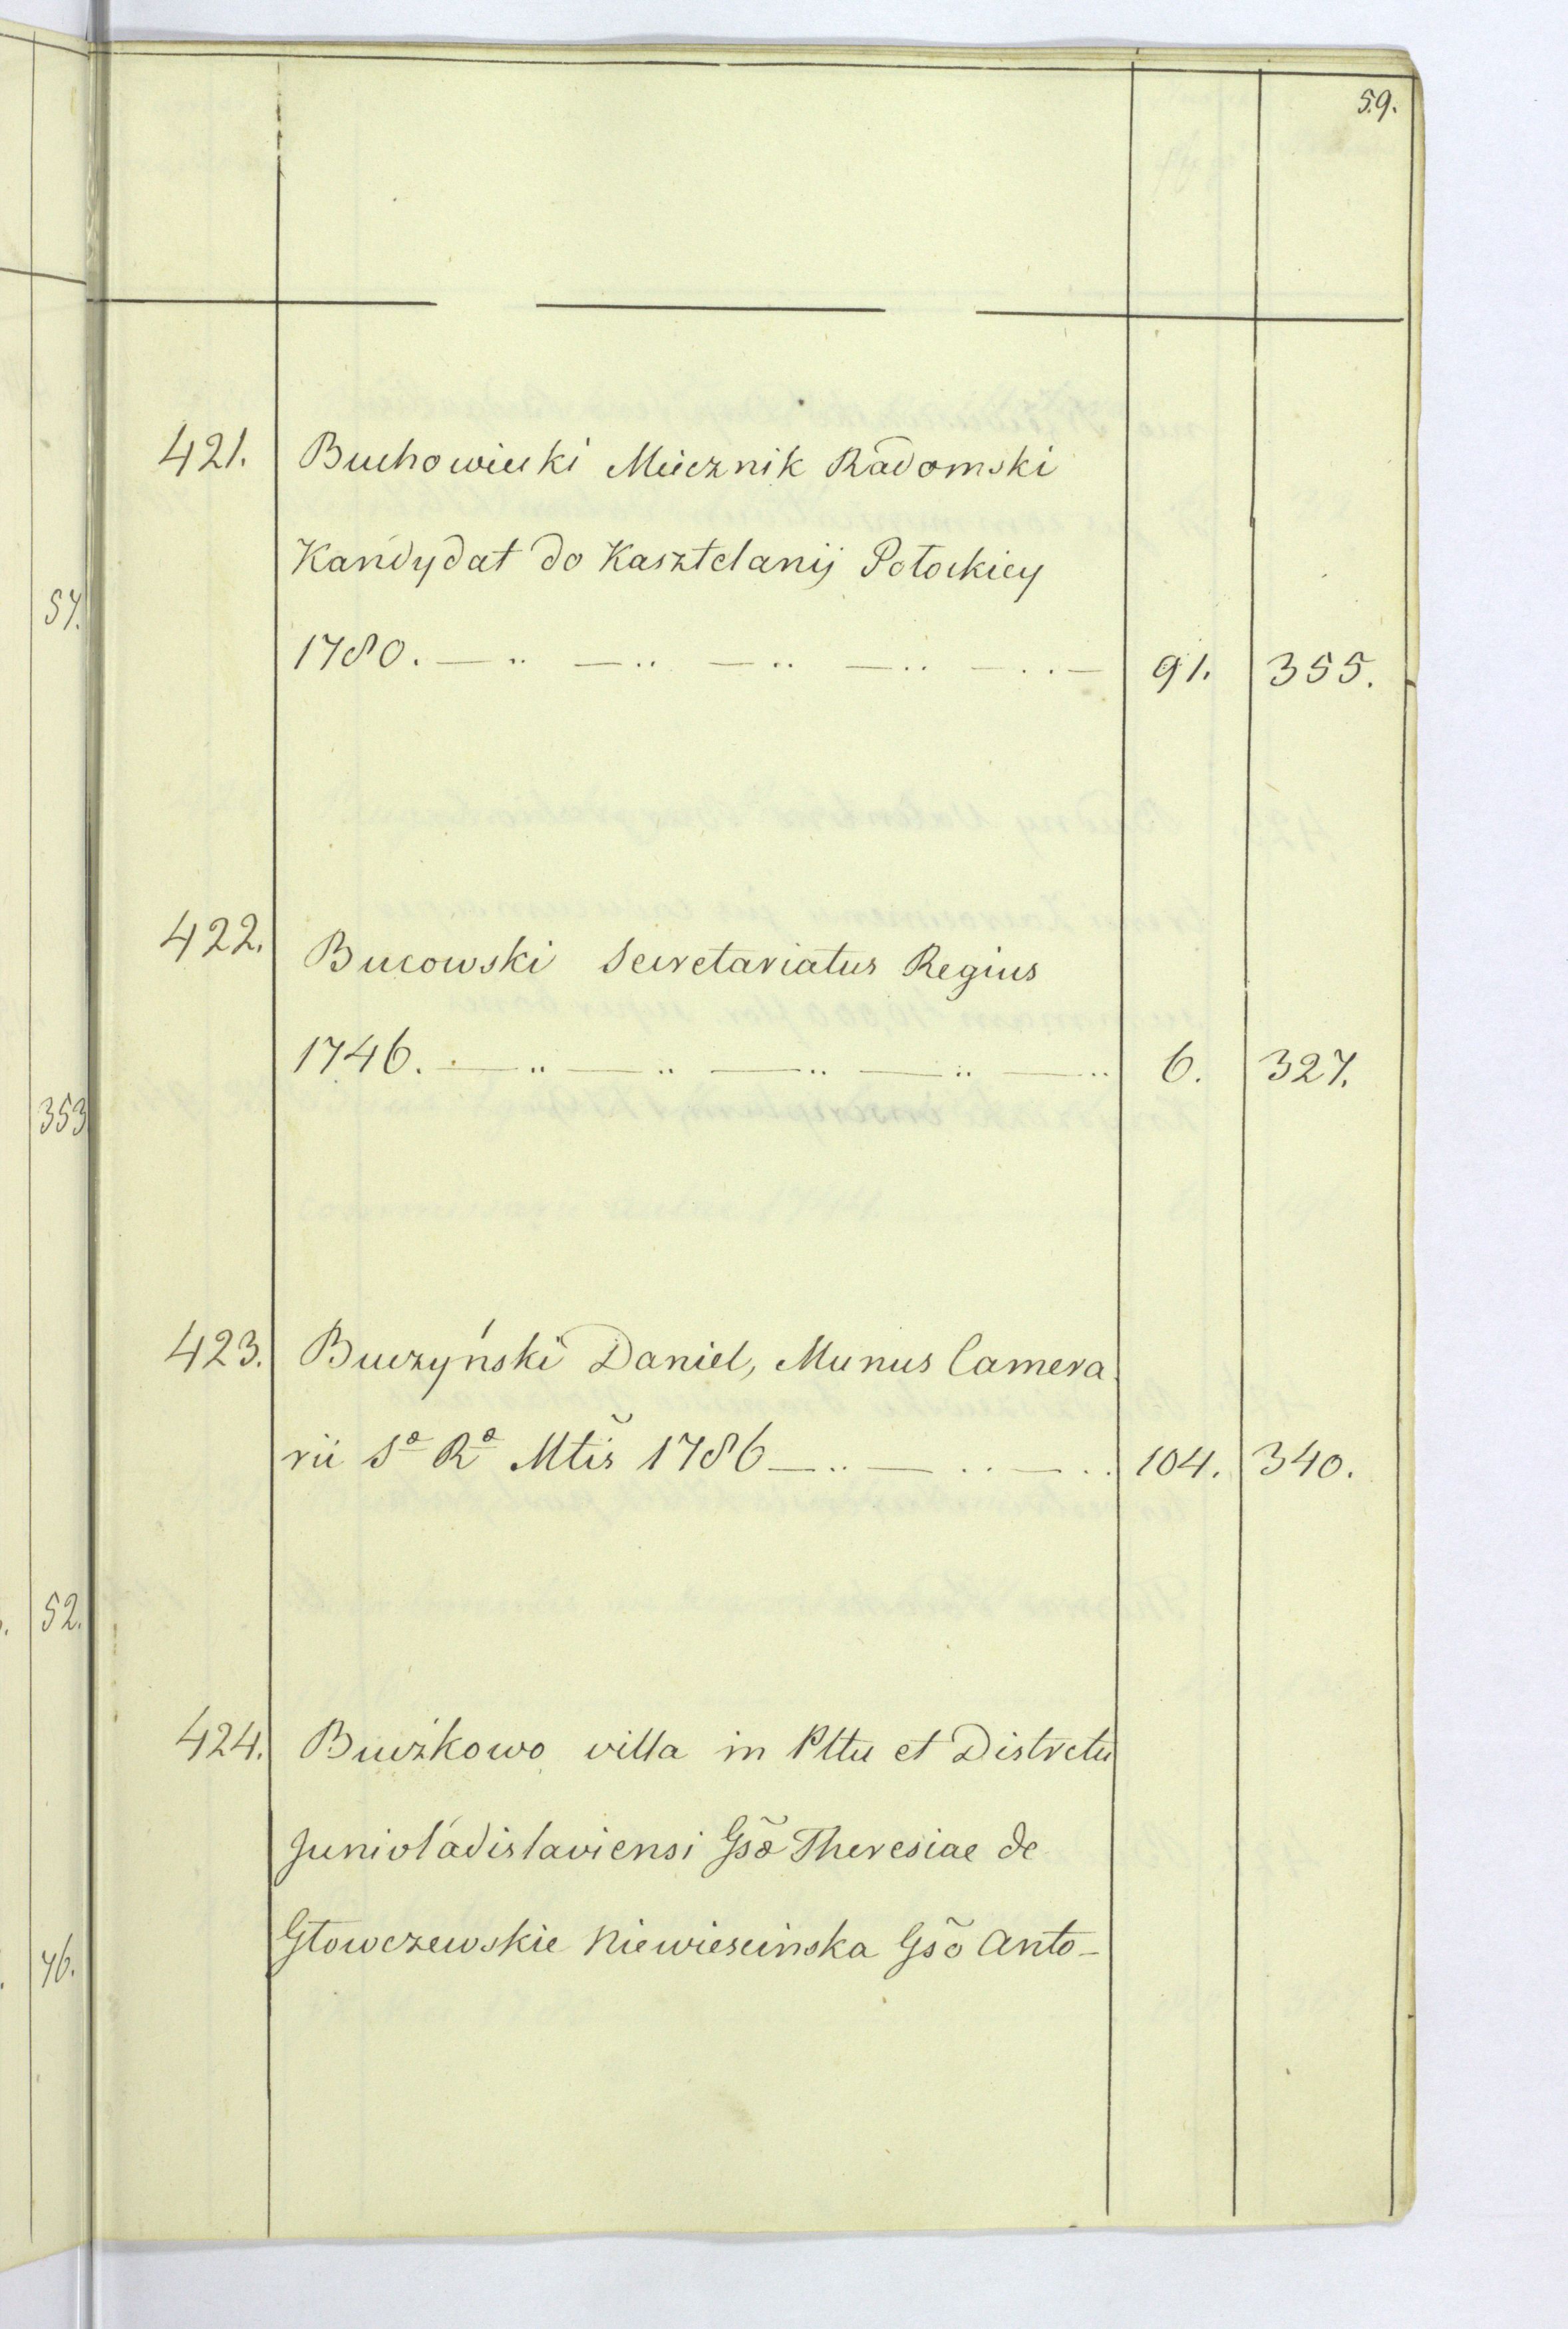 59.
421. Buchowiecki Miecznik Radomski
Kandydat do Kasztelanij Połockiey
1780. — .. — .. — .. — .. — .. — 91. 355.
422. Bucowski Secretariatus Regius
1746. — .. — .. — .. — .. — .. 6. 327.
423. Buczyński Daniel, Munus Camera
rii Sª Rª Mtis 1786 — .. — .. — .. 104. 340.
424. Buczkowo villa in Plttu et Distretu
Junivladislaviensi Gsæ Theresiae de
Głowczewskie Niewiescinska Gso Anto-
57.
353
52.
46.